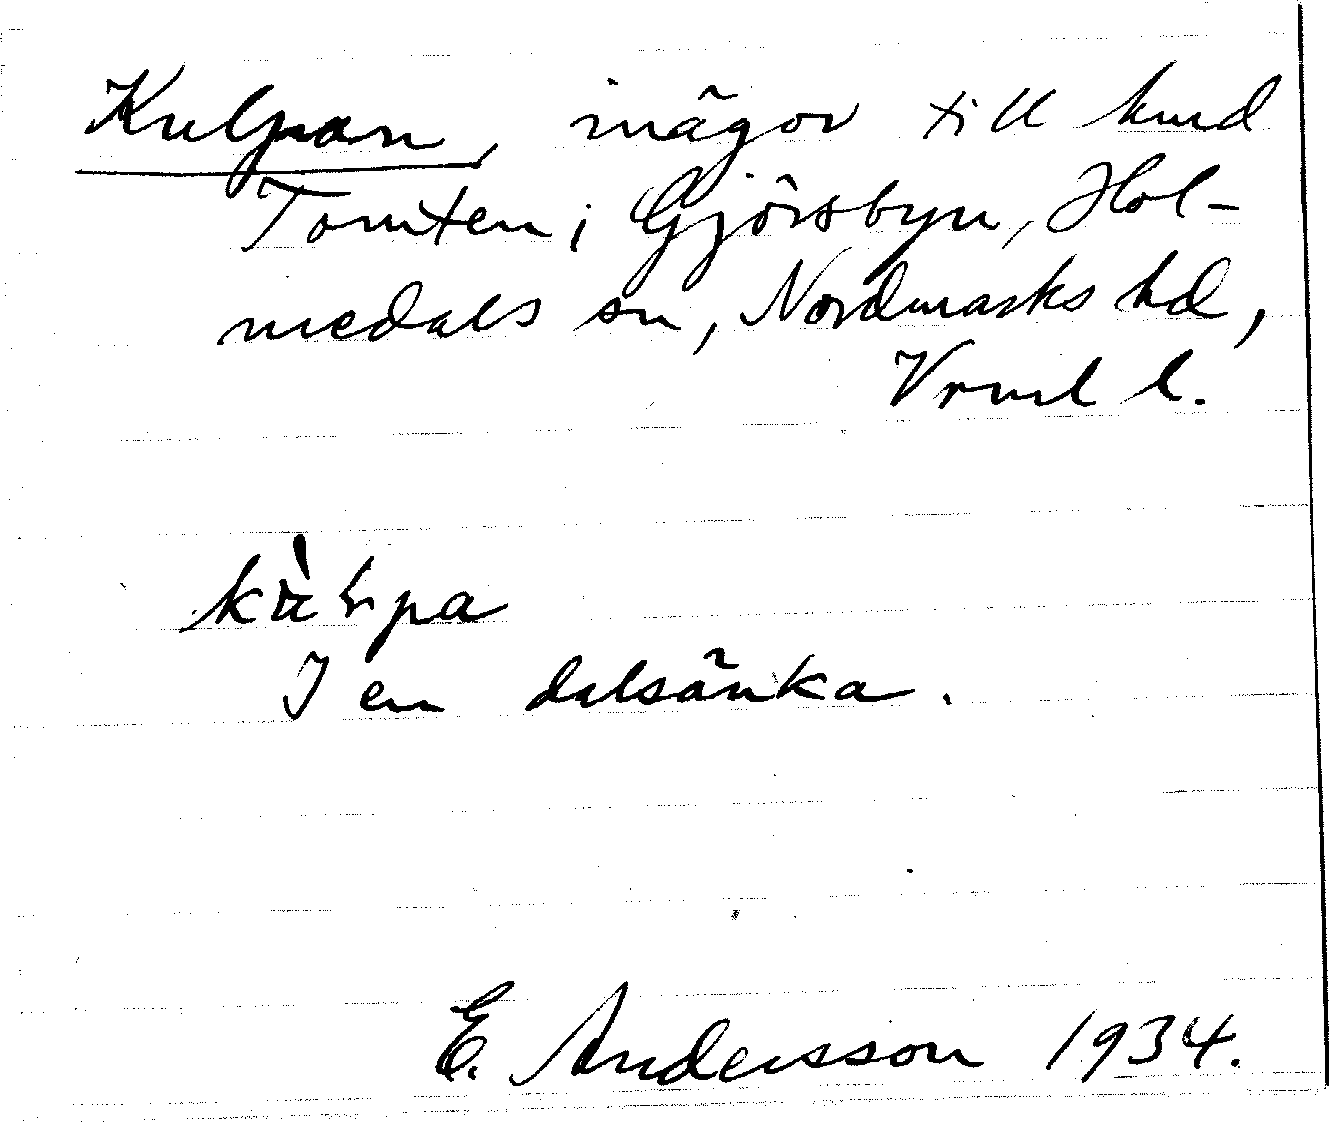 Kulpan, inägor till hmd
Tomten i Gjörsbyn, Hol-
medals sn, Nordmarks hd,
Vrml l.
I en dalsänka.
E. Andersson 1934.